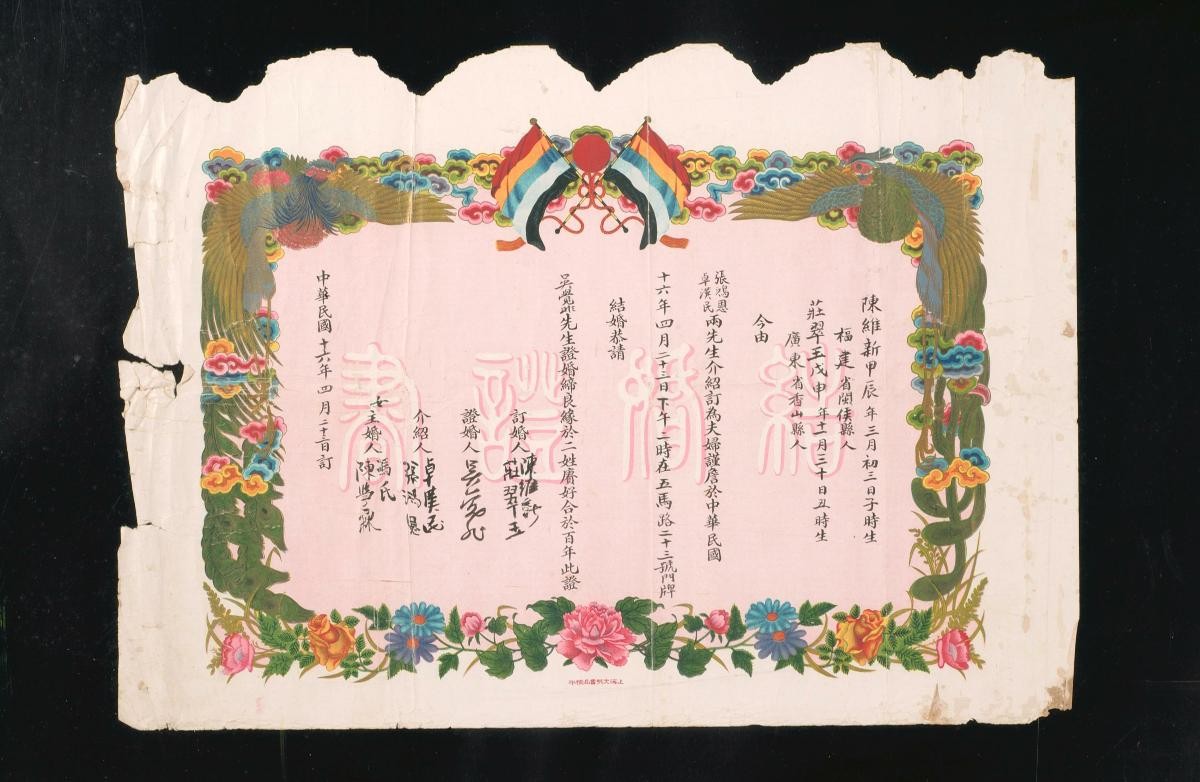 結婚證書
陳維新甲辰年三月初三日子時生
福建省閩侯縣人
莊翠玉戊申年十一月三十日丑時生
廣東省香山縣人
今由
張鴻恩
卓漢民
兩先生介紹訂為夫婦謹詹於中華民國
十六年四月二十三日下午二時在五馬路二十三號門牌
結婚恭請
先生證婚締良緣於二姓賡好合於百年此證
訂婚人
陳維新
莊翠玉
證婚人
介紹人
卓漢民
張鴻恩
女主婚人
馮氏
中華民國十六年四月二十三日訂